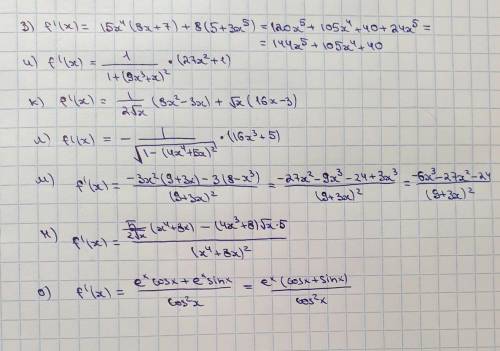 з) f'(x) = 15x⁴(8x+7) + 8(5+3x⁵) = 120x⁵ + 105x⁴ + 40 + 24x⁵ =
= 144x⁵ + 105x⁴ + 40
и) f'(x) = 1/(1+(9x³+x)²) · (27x²+1)
к) f'(x) = 1/(2√x) (8x²-3x) + √x (16x-3)
л) f'(x) = - 1/√(1-(4x⁴+5x)²) · (16x³+5)
м) f'(x) = (-3x²(9+3x) - 3(8-x³))/(9+3x)² = (-27x²-9x³-24+3x³)/(9+3x)² = (-6x³-27x²-24)/(9+3x)²
н) f'(x) = (5/(2√x) (x⁴+8x) - (4x³+8)√x·5)/(x⁴+8x)²
о) f'(x) = (eˣcosx + eˣsinx)/cos²x = eˣ(cosx+sinx)/cos²x